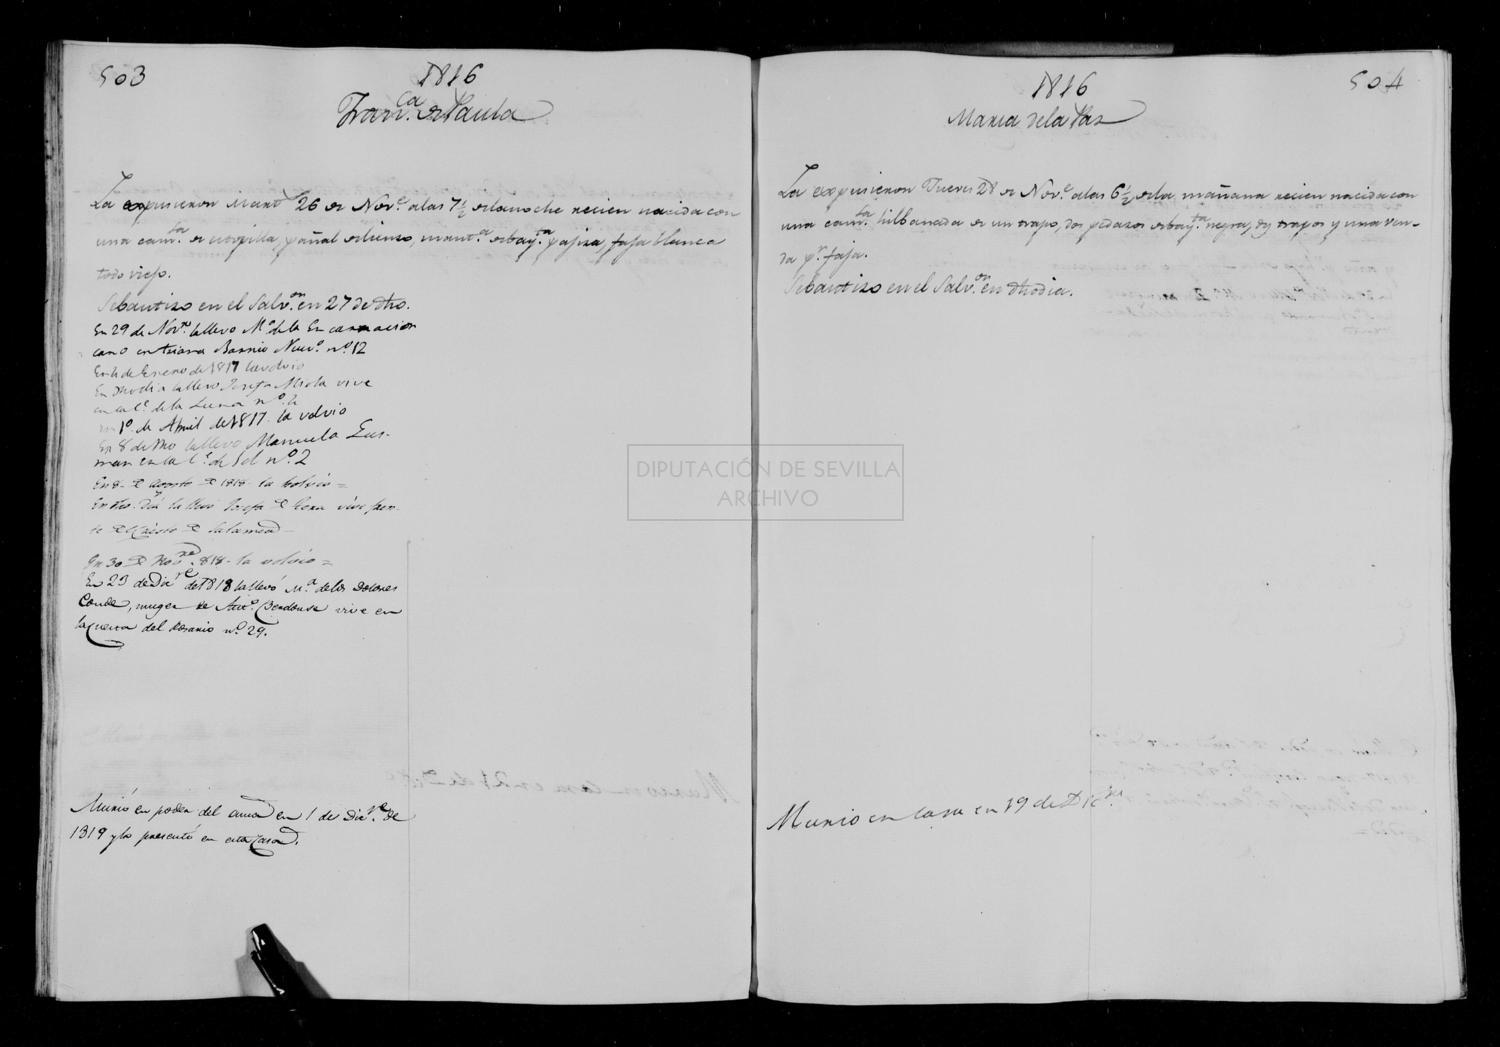 503
1816
Fran.ca de Paula
La expusieron Mart.s 26 de Nov.e alas 7½ dela noche recien nacida con
una cam.ta de crespilla, pañal de lienso, mant.a de bay.ta pajisa, faja blanca
todo viejo.
Se bautizo en el Salv.or en 27 de dho.
En 29 de Nov.re la llevo M.a de la Encarnacion
cano en triana Barrio Nuev.o n.o 12
En 4 de Enero de 1817 la volvio
En dho dia la llevo Josefa Miola vive
en la C.e de la Luna n.o 2
en 1.o de Abril de 1817. la volvio
En 8 de dho la llevo Manuela Gus-
man en la C.e de Sol n.o 2
En 8 de agosto de 1818 la bolvio =
En dho. Dia la llevó Josefa de vive fren-
te de Cristo de
En 30 de Nov.re 818 la volvio =
En 23 de Dic.e de 1818 la llevó M.a de los Dolores
Conde, muger de Ant.o vive en
la Cuesta del Rosario n.o 29.
Murió en poder del ama en 1 de Dic.re de
1819 y la presentó en esta Casa.
504
1816
Maria dela Paz
La expusieron Jueves 28 de Nov.e alas 6½ dela mañana recien nacida con
una cam.ta hilbanada de un trapo, dos pedazos de bay.ta negra, dos trapos y una ven-
da p.r faja.
Se bautizo en el Salv.or en dho dia.
Murio en casa en 19 de Dic.re
DIPUTACIÓN DE SEVILLA
ARCHIVO